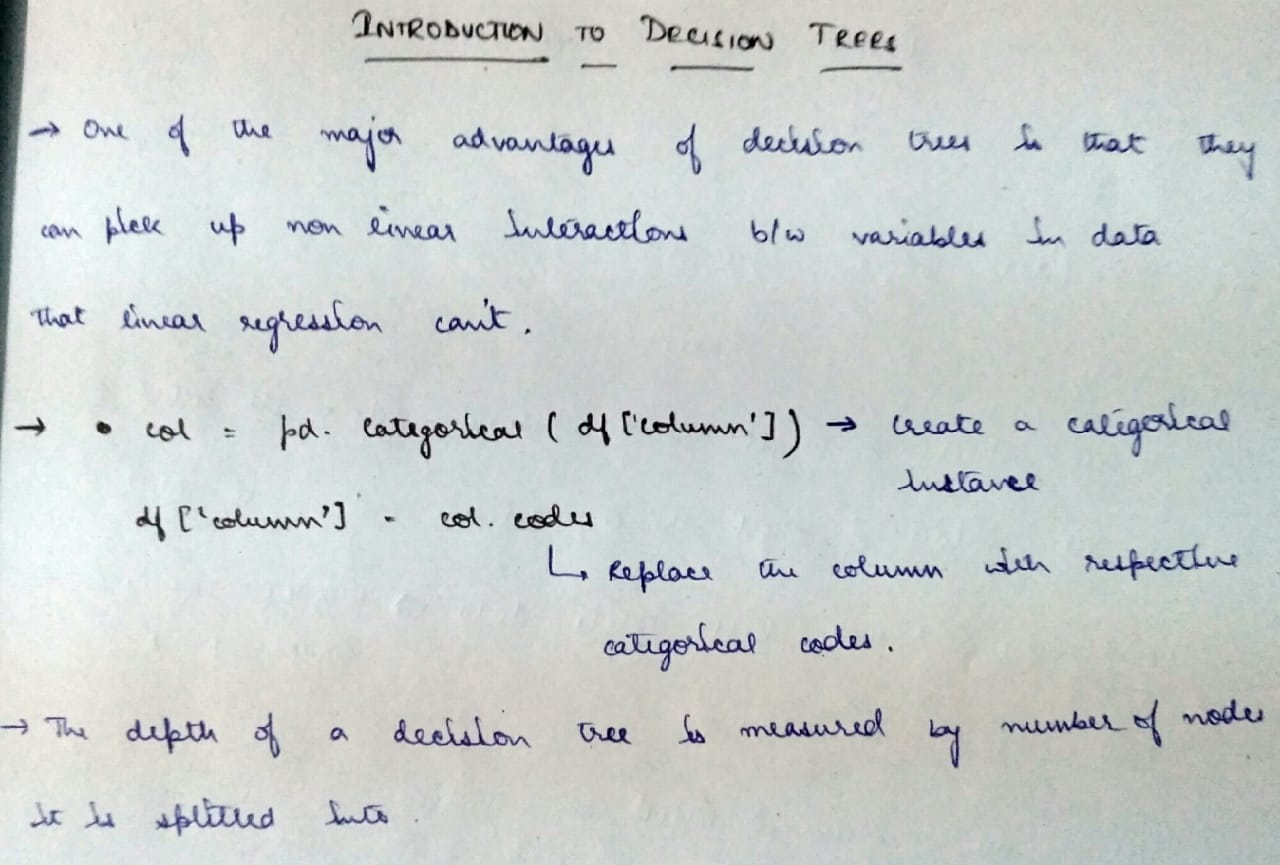 INTRODUCTION TO DECISION TREES
→ One of the major advantages of decision trees is that they
can pick up non linear interactions b/w variables in data
that linear regression can't.
→ • col = pd. categorical ( df ['column'] ) → create a categorical
instance
df ['column'] = col. codes
↳ Replace the column with respective
categorical codes.
→ The depth of a decision tree is measured by number of nodes
it is splitted into.